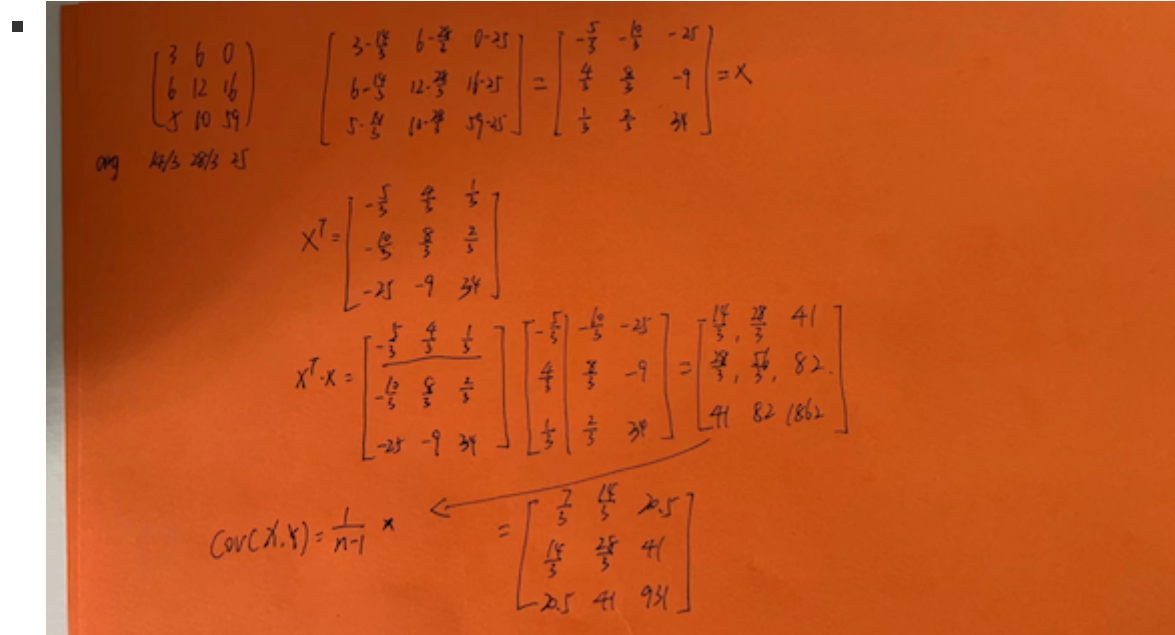 [3 6 0; 6 12 16; 5 10 59]
avg 14/3 28/3 25
[3-14/3 6-28/3 0-25; 6-14/3 12-28/3 16-25; 5-14/3 10-28/3 59-25] = [-5/3 -10/3 -25; 4/3 8/3 -9; 1/3 2/3 34] = X
X^T = [-5/3 4/3 1/3; -10/3 8/3 2/3; -25 -9 34]
X^T·X = [-5/3 4/3 1/3; -10/3 8/3 2/3; -25 -9 34] [-5/3 -10/3 -25; 4/3 8/3 -9; 1/3 2/3 34] = [14/3, 28/3 41; 28/3, 56/3, 82.; 41 82 1862]
Cov(X.Y) = 1/(n-1) × = [7/3 14/3 20.5; 14/3 28/3 41; 20.5 41 931]